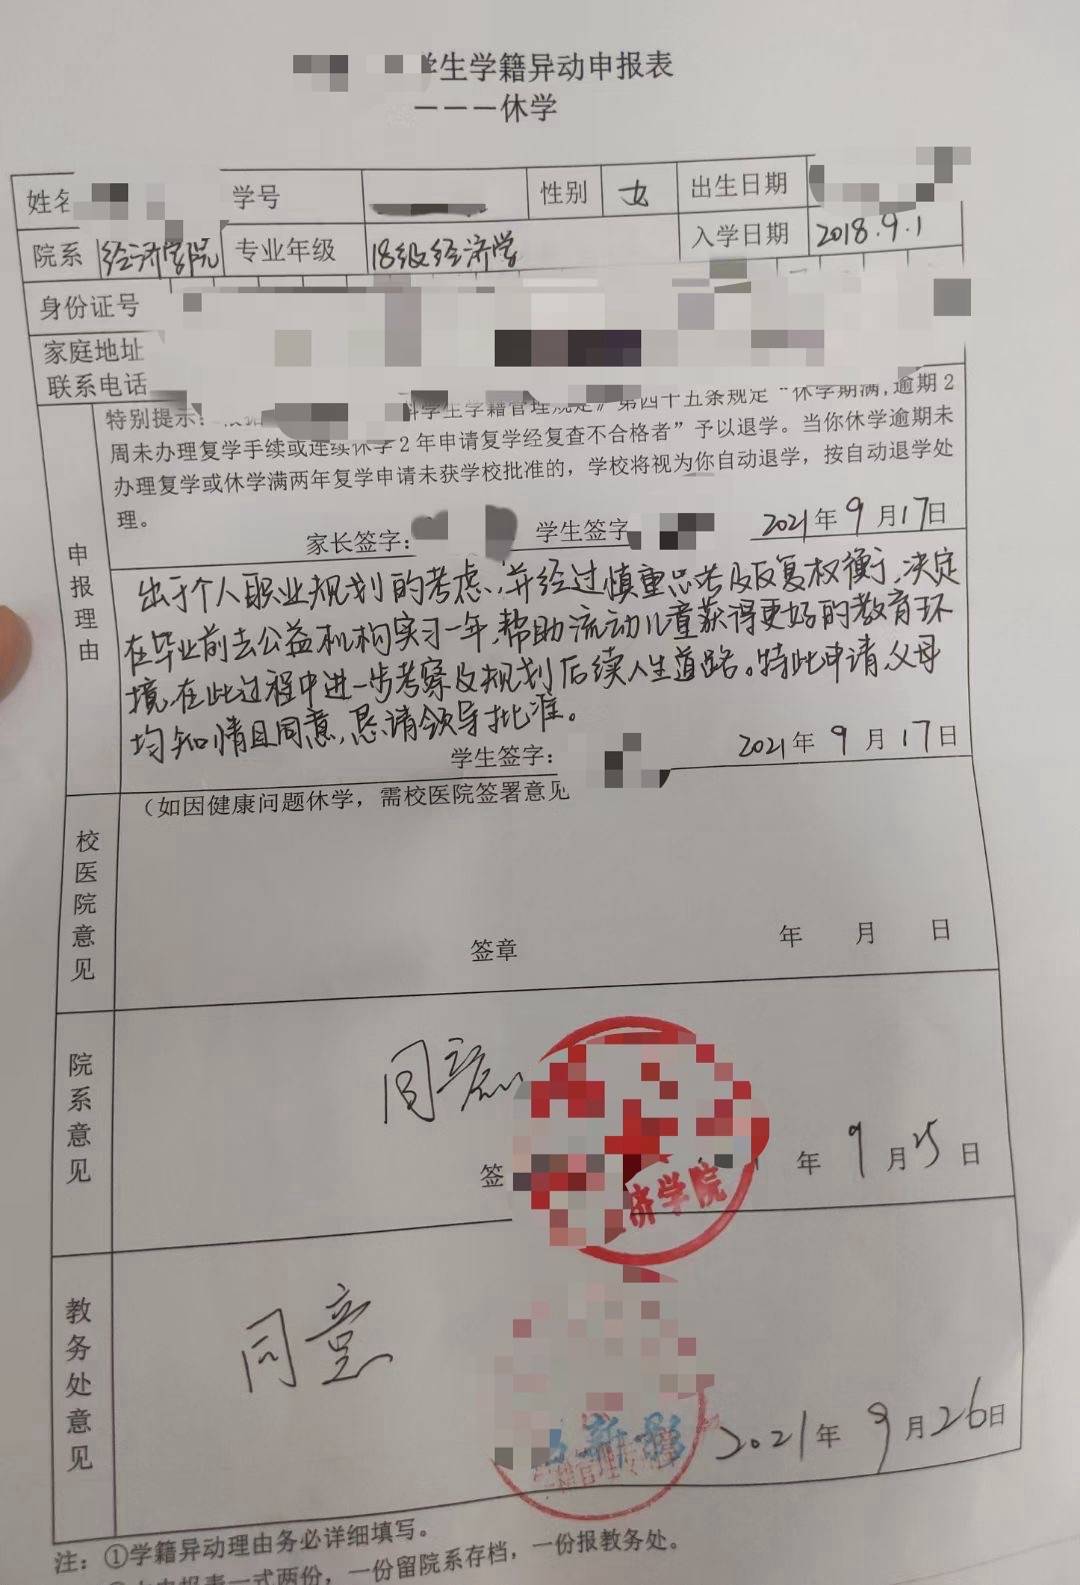 学生学籍异动申报表
———休学
姓名 学号 性别 女 出生日期
院系 经济学院 专业年级 18级经济学 入学日期 2018.9.1
身份证号
家庭地址
联系电话
特别提示： 科学生学籍管理规定》第四十五条规定“休学期满,逾期2
周未办理复学手续或连续休学2年申请复学经复查不合格者”予以退学。当你休学逾期未
办理复学或休学满两年复学申请未获学校批准的，学校将视为你自动退学，按自动退学处
理。
家长签字： 学生签字 2021年9月17日
申报理由
出于个人职业规划的考虑，并经过慎重思考及反复权衡，决定
在毕业前去公益机构实习一年，帮助流动儿童获得更好的教育环
境，在此过程中进一步考察及规划后续人生道路。特此申请，父母
均知情且同意，恳请领导批准。
学生签字： 2021年9月17日
校医院意见
（如因健康问题休学，需校医院签署意见
签章 年 月 日
院系意见
同意
签 年9月25日
济学院
教务处意见
同意
2021年9月26日
注：①学籍异动理由务必详细填写。
申报表一式两份，一份留院系存档，一份报教务处。